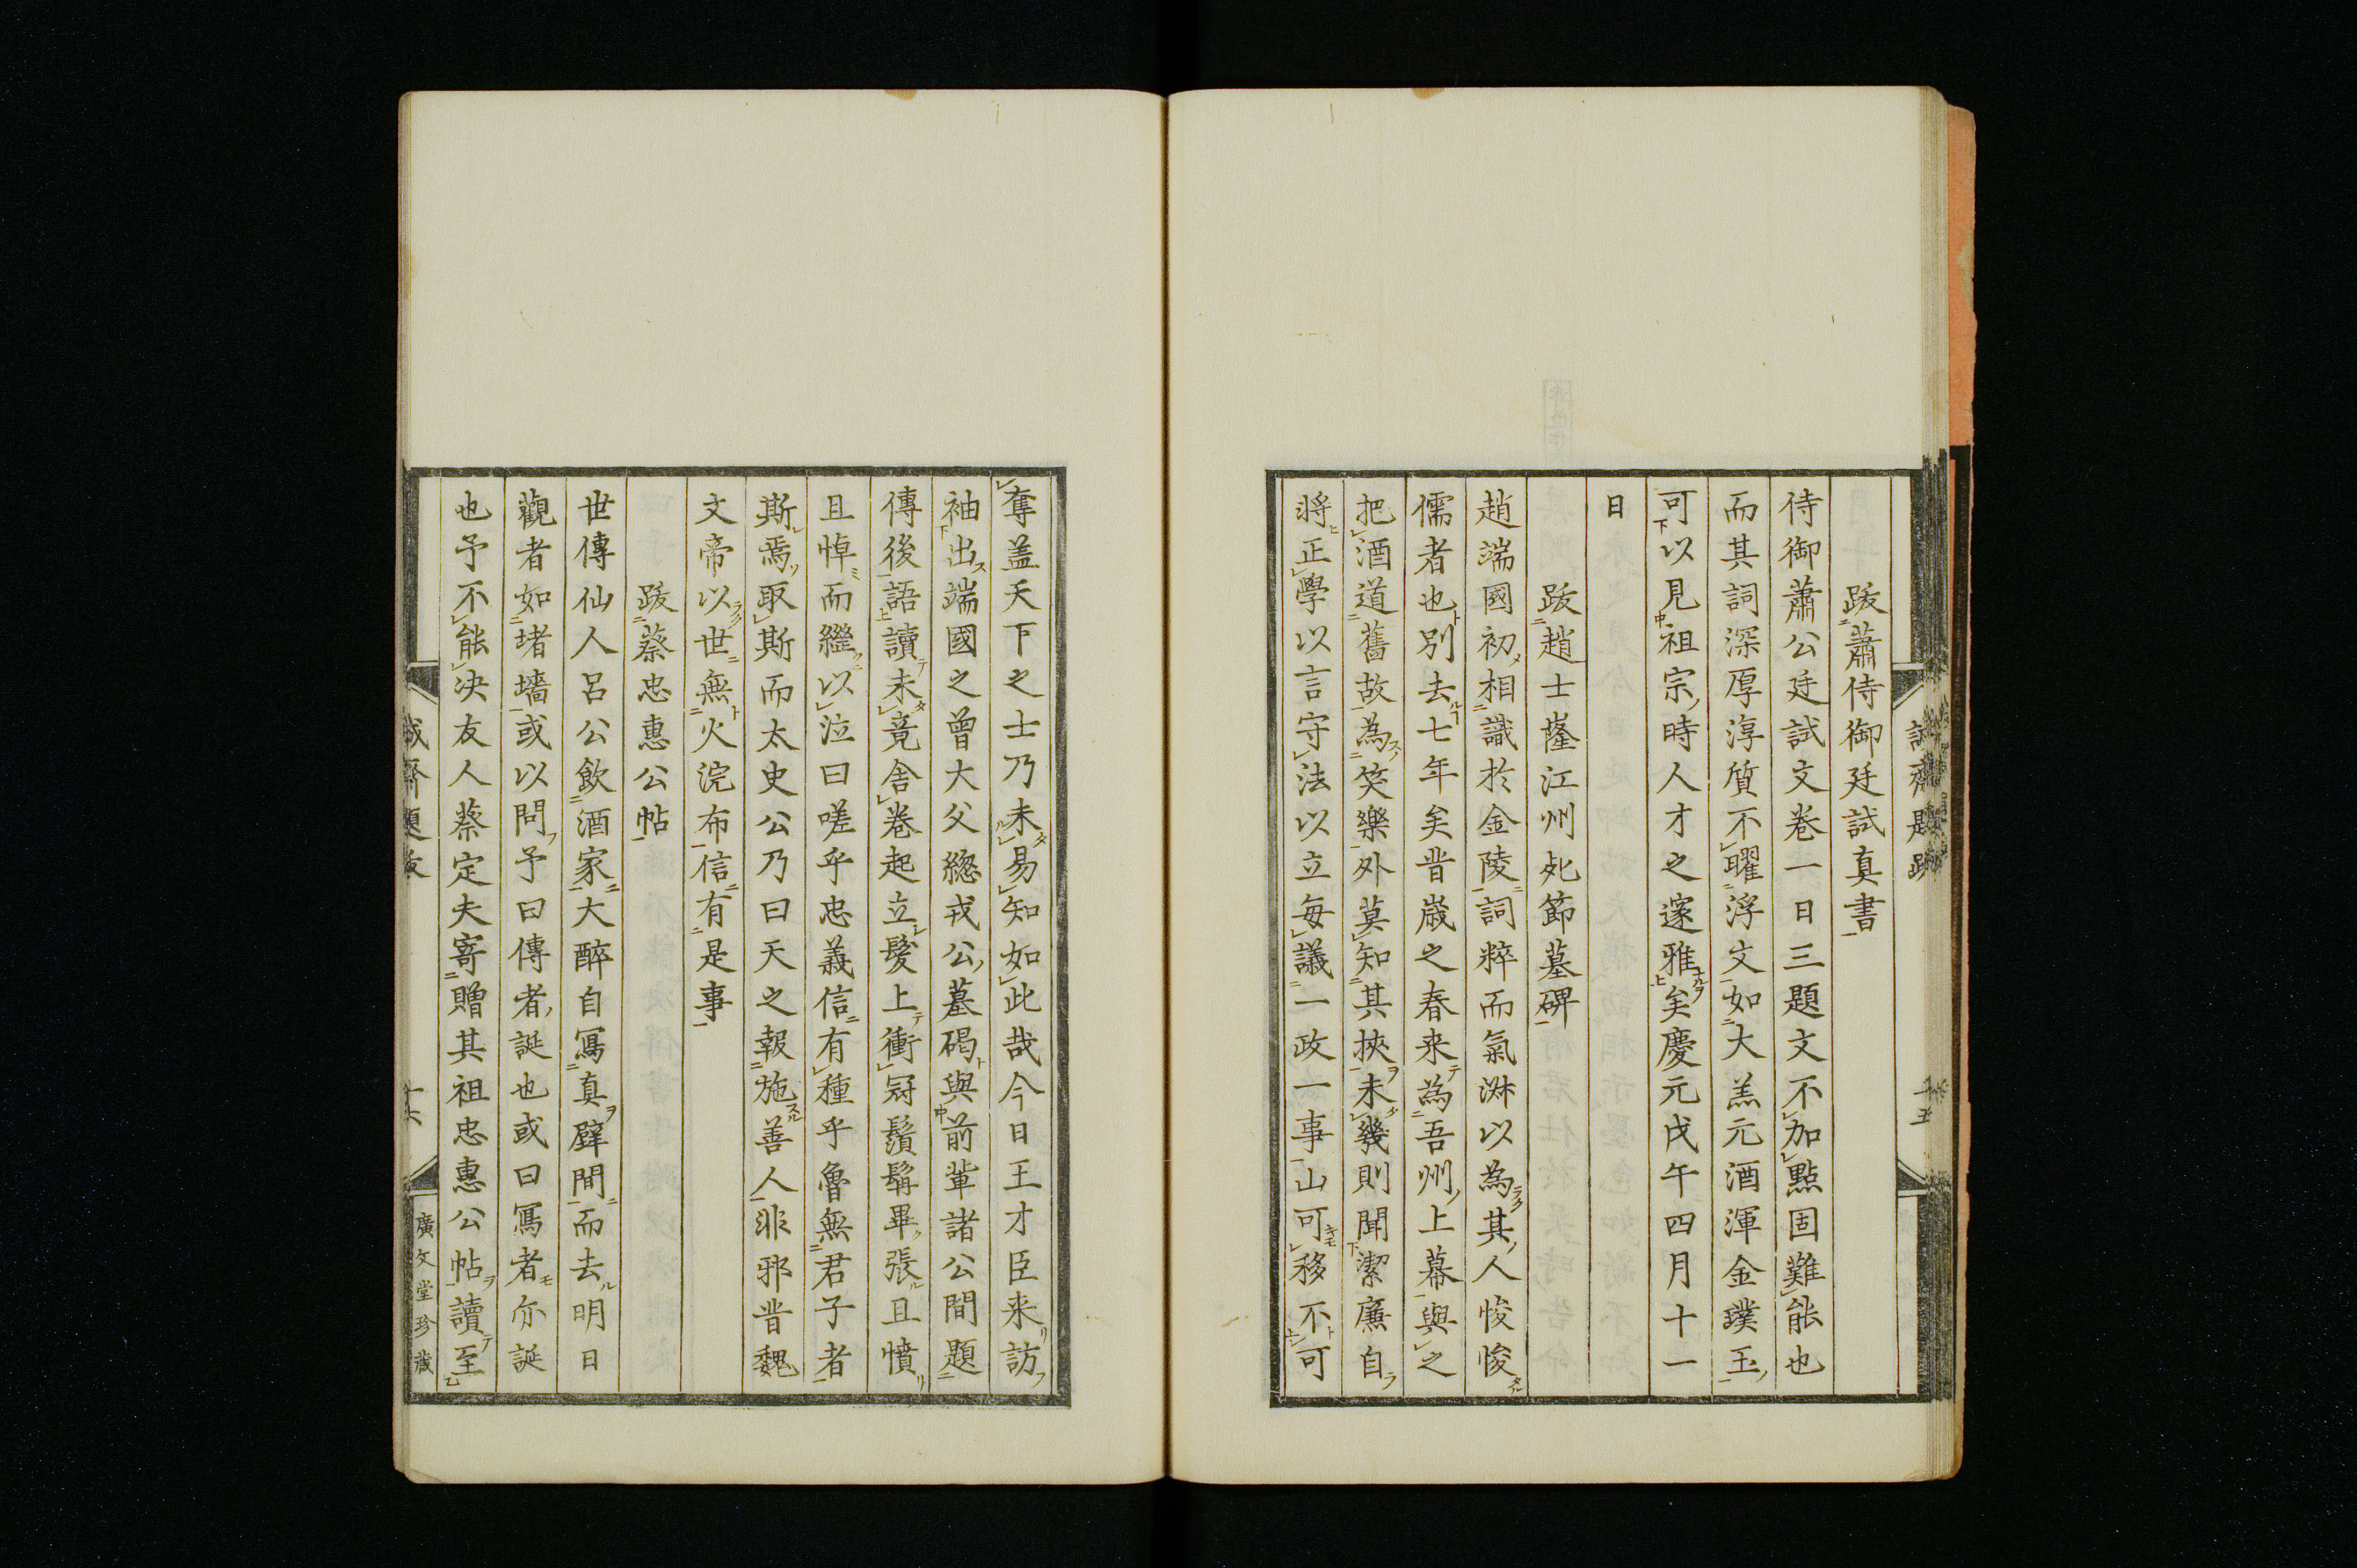 跋蕭侍御廷試真書
侍御蕭公廷試文卷一日三題文不加點固難能也
而其詞深厚淳質不曜浮文如大羹元酒渾金璞玉
可以見祖宗時人才之邃雅矣慶元戊午四月十一
日
跋趙士㠓江州死節墓碑
趙端國初相識於金陵詞粹而氣淋以為其人悛悛
儒者也別去七年矣昔歳之春来為吾州上幕與之
把酒道舊故為笑樂外莫知其挾未幾則聞潔廉自
將正學以言守法以立每議一政一事山可移不可
奪盖天下之士乃未易知如此哉今日王才臣来訪
袖出端國之曾大父緫戎公墓碣與前輩諸公間題
傳後語讀未竟舎卷起立髮上衝冠鬚髯畢張且憤
且悼而繼以泣曰嗟乎忠義信有種乎魯無君子者
斯焉取斯而太史公乃曰天之報施善人非邪昔魏
文帝以世無火浣布信有是事
跋蔡忠惠公帖
世傳仙人呂公飲酒家大醉自寫真壁間而去明日
觀者如堵墻或以問予曰傳者誕也或曰寫者亦誕
也予不能决友人蔡定夫寄贈其祖忠惠公帖讀至
誠齋題跋
十六
廣文堂珍藏